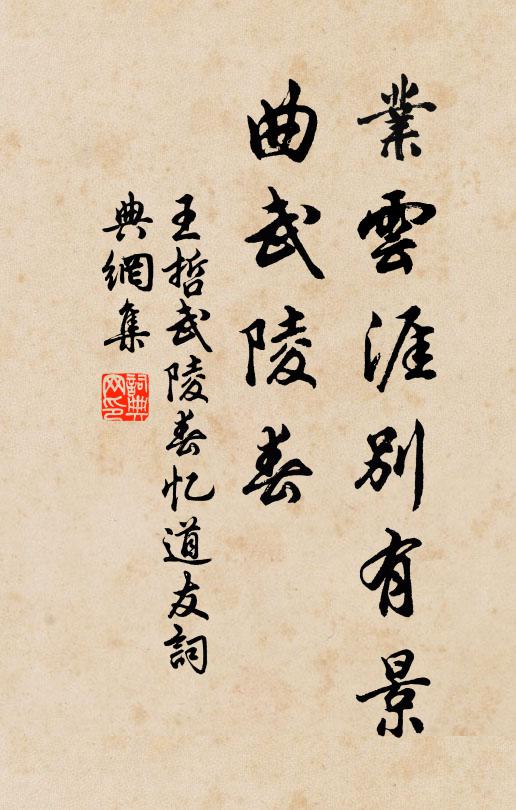 業雲涯別有景
曲武陵春
王哲武陵春忆道友詞
典網集
詞典网印